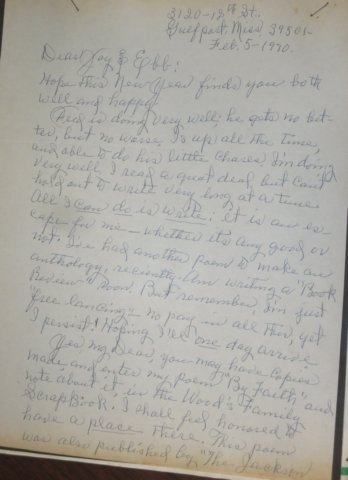 3120-12th St.
Gulfport, Miss 39501-
Feb. 5-1970.
Dear Joy & Ebb:
Hope this New Year finds you both
well and happy.
is doing very well; he gets no bet-
ter, but no worse, Is up all the time,
and able to do his little chores. I'm doing
very well, I read a great deal, but can't
hold out to write very long at a time
All I can do is write: it is an es-
cape for me - whether it's any good or
not. I've had another poem to make an
anthology, recently. Am writing a "Book
Review" soon. But remember, I'm just
"free lancing - no pay in all this, yet
I persist! Hoping I'll one day arrive.
Yes my Dear, you may have copies
made and enter my poem "By Faith," and
note about it, in the Wood's Family
Scrapbook. I shall feel honored to
have a place there. This poem
was also published by "The Jackson